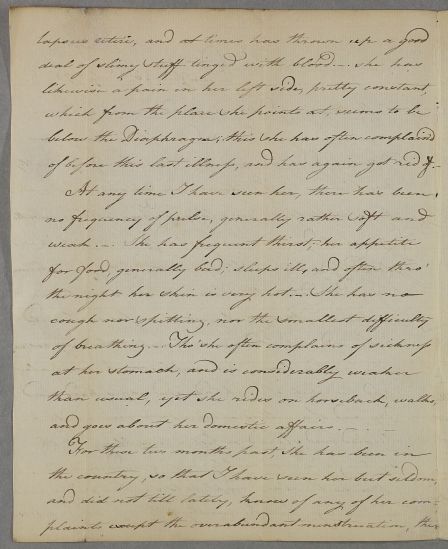 lapsus uteri, and at times has thrown up a good
deal of slimy stuff tinged with blood.-. she has
likewise a pain in her left side, pretty constant,
which from the place she points at, seems to be
below the Diaphragm; this she has often complained
of before this last illness, and has again got rid of.-
At any time I have seen her, there has been
no frequency of pulse, generally rather soft and
weak.-. She has frequent thirst; her appetite
for food, generally bad; sleeps ill, and often thro'
the night her skin is very hot.-. She has no
cough nor spitting, nor the smallest difficulty
of breathing.-. Tho' she often complains of sickness
at her stomach, and is considerably weaker
than usual, yet she rides on horseback, walks,
and goes about her domestic affairs.-.-.
For these two months past, She has been in
the country, so that I have seen her but seldom,
and did not till lately, know of any of her com-
plaints except the overabundant menstruation, tho'